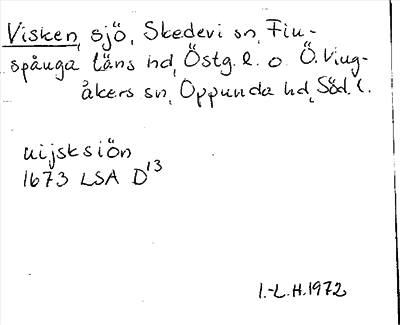 Visken, sjö, Skedevi sn, Fin-
spånga läns hd, Östg. l. o Ö. Ving-
åkers sn, Oppunda hd, Söd. l.
uijsksiön
1673 LSA D13
I.-L.H.1972